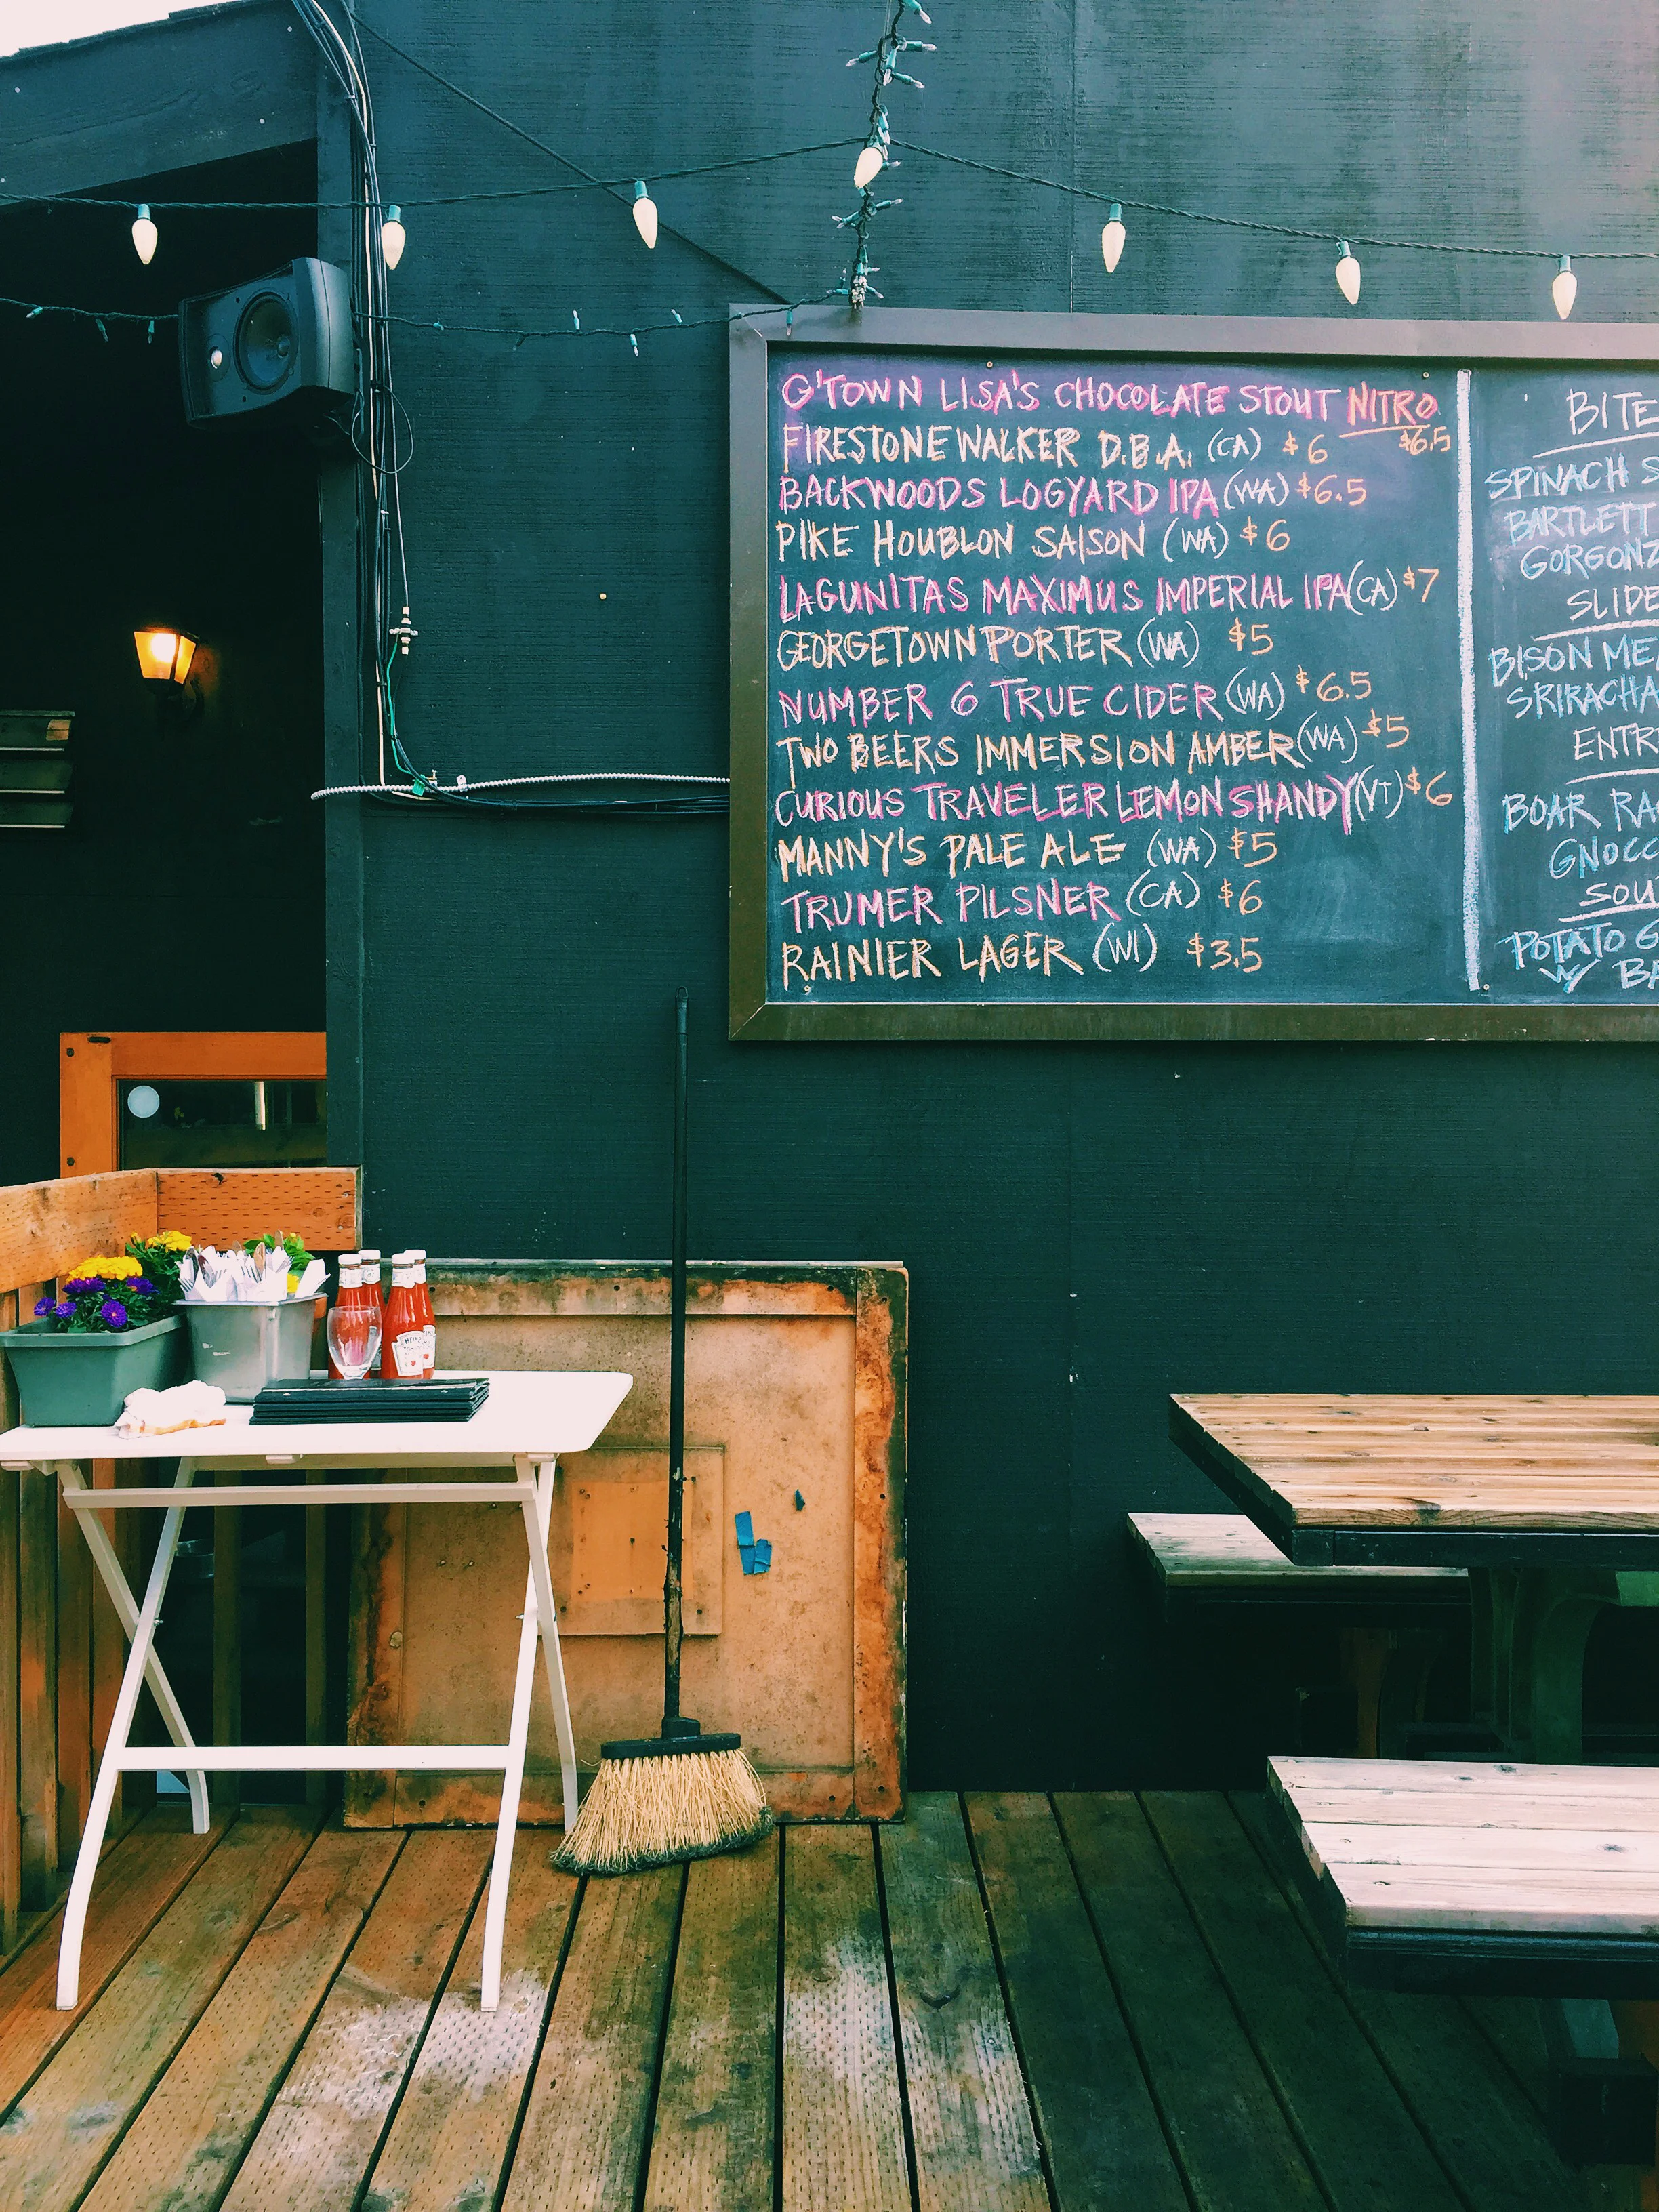 G'TOWN LISA'S CHOCOLATE STOUT NITRO
$6.5
FIRESTONE WALKER D.B.A. (CA) $6
BACKWOODS LOGYARD IPA (WA) $6.5
PIKE HOUBLON SAISON (WA) $6
LAGUNITAS MAXIMUS IMPERIAL IPA (CA) $7
GEORGETOWN PORTER (WA) $5
NUMBER 6 TRUE CIDER (WA) $6.5
TWO BEERS IMMERSION AMBER (WA) $5
CURIOUS TRAVELER LEMON SHANDY (VT) $6
MANNY'S PALE ALE (WA) $5
TRUMER PILSNER (CA) $6
RAINIER LAGER (WI) $3.5
BITE
SPINACH S
BARTLETT
GORGONZ
SLIDE
BISON ME
SRIRACHA
ENTR
BOAR RA
GNOCC
SOU
POTATO G
W/ BA
HEINZ